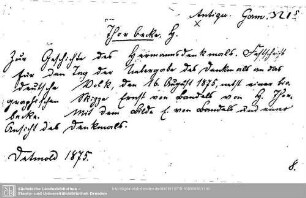 Antiqu. Gam. 3215
Thorbecke, H.
Zur Geschichte des Hermannsdenkmals. Festschrift
für den Tag der Uebergabe des Denkmals an das
deutsche Volk, den 16. August 1875, nebst einer bio-
graphischen Skizze Ernst von Bandels von H. Thor-
becke. Mit dem Bilde E. von Bandels und einer
Ansicht des Denkmals.
Detmold 1875.
8.